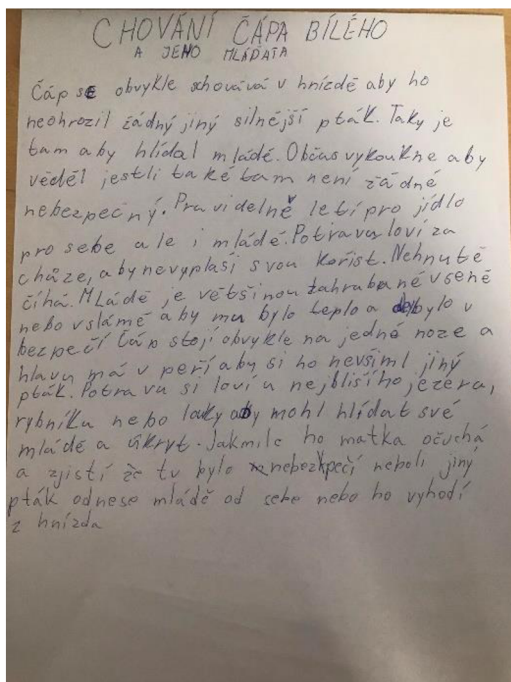 CHOVÁNÍ ČÁPA BÍLÉHO
A JEHO MLÁĎATA
Čáp se obvykle schovává v hnízdě aby ho
neohrozil žádný jiný silnější pták. Taky je
tam aby hlídal mládě. Občas vykoukne aby
věděl jestli také tam není žádné
nebezpečný. Pravidelně letí pro jídlo
pro sebe ale i mládě. Potravu loví za
chůze, aby nevyplaší svou kořist. Nehnutě
číhá. Mládě je většinou zahrabané v seně
nebo v slámě aby mu bylo teplo a bylo v
bezpečí Čáp stojí obvykle na jedné noze a
hlavu má v peří aby si ho nevšiml jiný
pták. Potravu si loví u nejblišího jezera,
rybníku nebo louky aby mohl hlídat své
mládě a úkryt. Jakmile ho matka očuchá
a zjistí že tu bylo nebezkpečí neboli jiný
pták odnese mládě od sebe nebo ho vyhodí
z hnízda